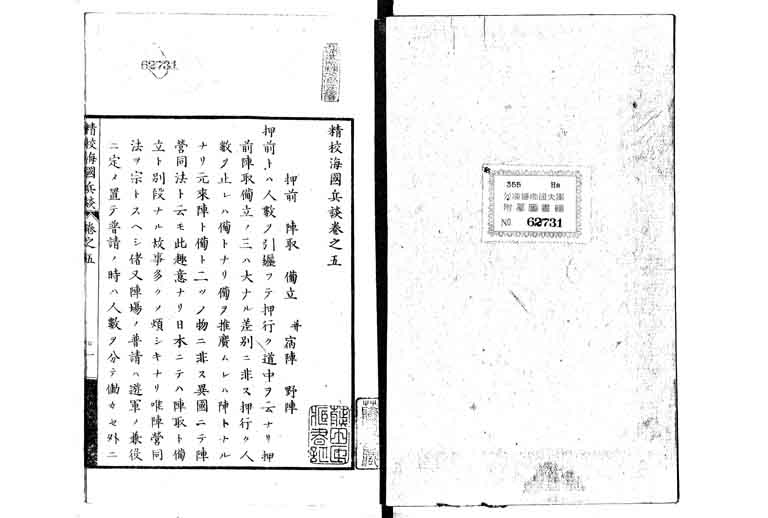 精校海國兵談卷之五
押前 陣取 備立 並宿陣 野陣
押前トハ人數ヲ引纏フテ押行ク道中ヲ云ナリ押
前陣取備立ノ三ハ大ナル差別ニ非ス押行ク人
數ヲ止レハ備トナリ備ヲ推廣ムレハ陣トナル
ナリ元來陣ト備ト二ツノ物ニ非ス異國ニテ陣
營同法ト云モ此趣意ナリ日本ニテハ陣取ト備
立ト別段ナル故事多クノ煩シキナリ唯陣營同
法ヲ宗トスヘシ偖又陣場ノ普請ハ遊軍ノ兼役
ニ定メ置テ普請ノ時ハ人數ヲ分テ働カセ外ニ
精校海國兵談 卷之五
62731
355 Ha
No 62731